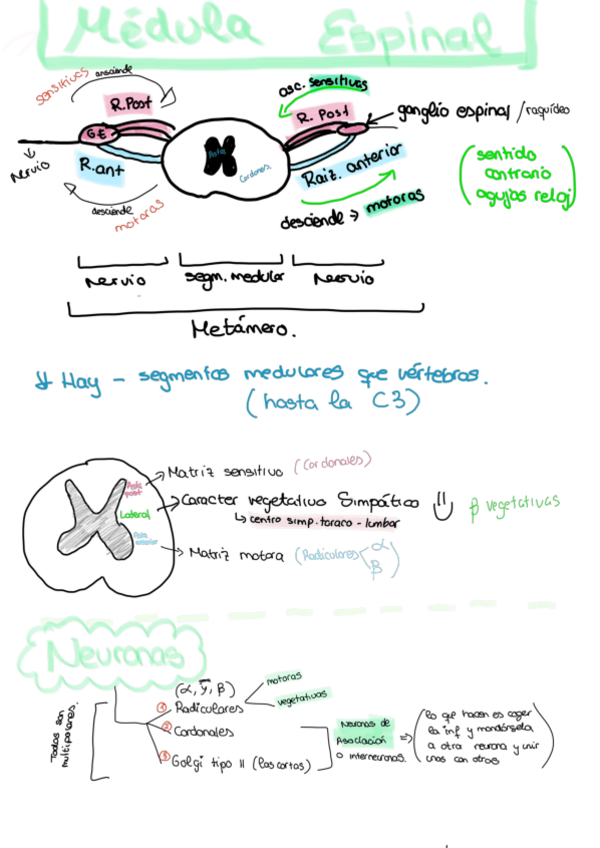 Médula Espinal
sensitivas
ansciende
R.Post
asc. sensitivas
R. Post
ganglio espinal/raquídeo
GE
Nervio
R.ant
Astas
Cordones
Raiz. anterior
(sentido
contrario
agujas reloj)
desciende
motoras
desciende → motoras
Nervio
segm. medular
Nervio
Metámero.
Hay - segmentos medulares que vértebras.
(hasta la C3)
Asta post
→ Matriz sensitiva (Cordonales)
Lateral
→ Caracter vegetativo Simpático
β vegetativas
↳ centro simp. toraco - lumbar
Asta anterior
→ Matriz motora (Radiculares α
β)
Neuronas
Todas son
multipolares.
(α, γ, β)
① Radiculares
motoras
vegetativas
② Cordonales
③ Golgi tipo II (las cortas)
Neuronas de
Asociación
o interneuronas.
⇒ (lo que hacen es coger
la inf y mandársela
a otra neurona y unir
unas con otras)